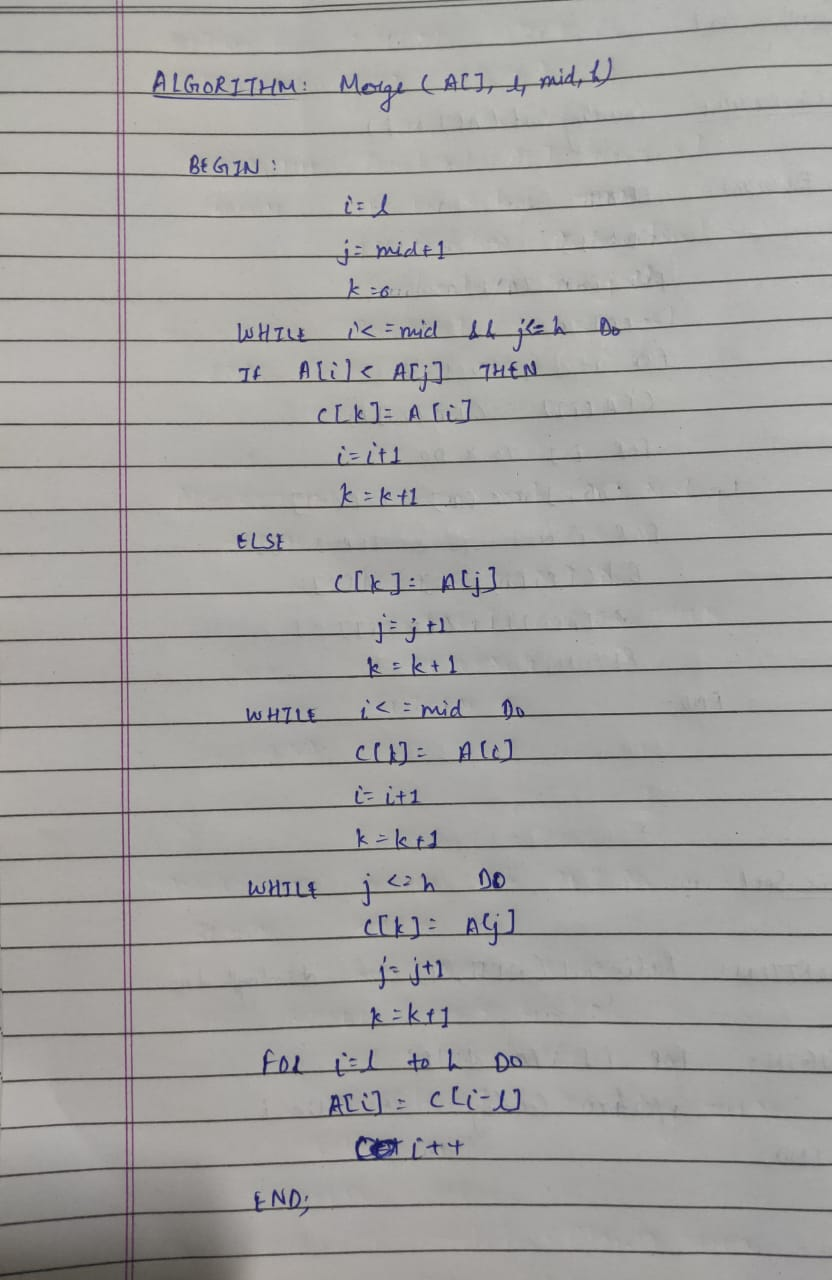 ALGORITHM: Merge (A[], l, mid, h)
BEGIN:
i=l
j=mid+1
k=0
WHILE i<=mid && j<=h Do
If A[i]< A[j] THEN
C[k]= A[i]
i=i+1
k=k+1
ELSE
C[k]= A[j]
j=j+1
k=k+1
WHILE i<=mid Do
C[k]= A[i]
i=i+1
k=k+1
WHILE j<=h DO
C[k]= A[j]
j=j+1
k=k+1
FOR i=l to h DO
A[i]= C[i-l]
i++
END;